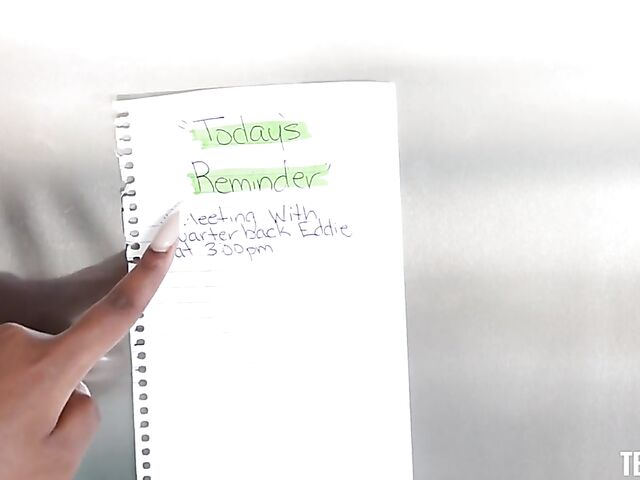 "Today's
Reminder"
Meeting With
Quarterback Eddie
at 3:00pm
TE